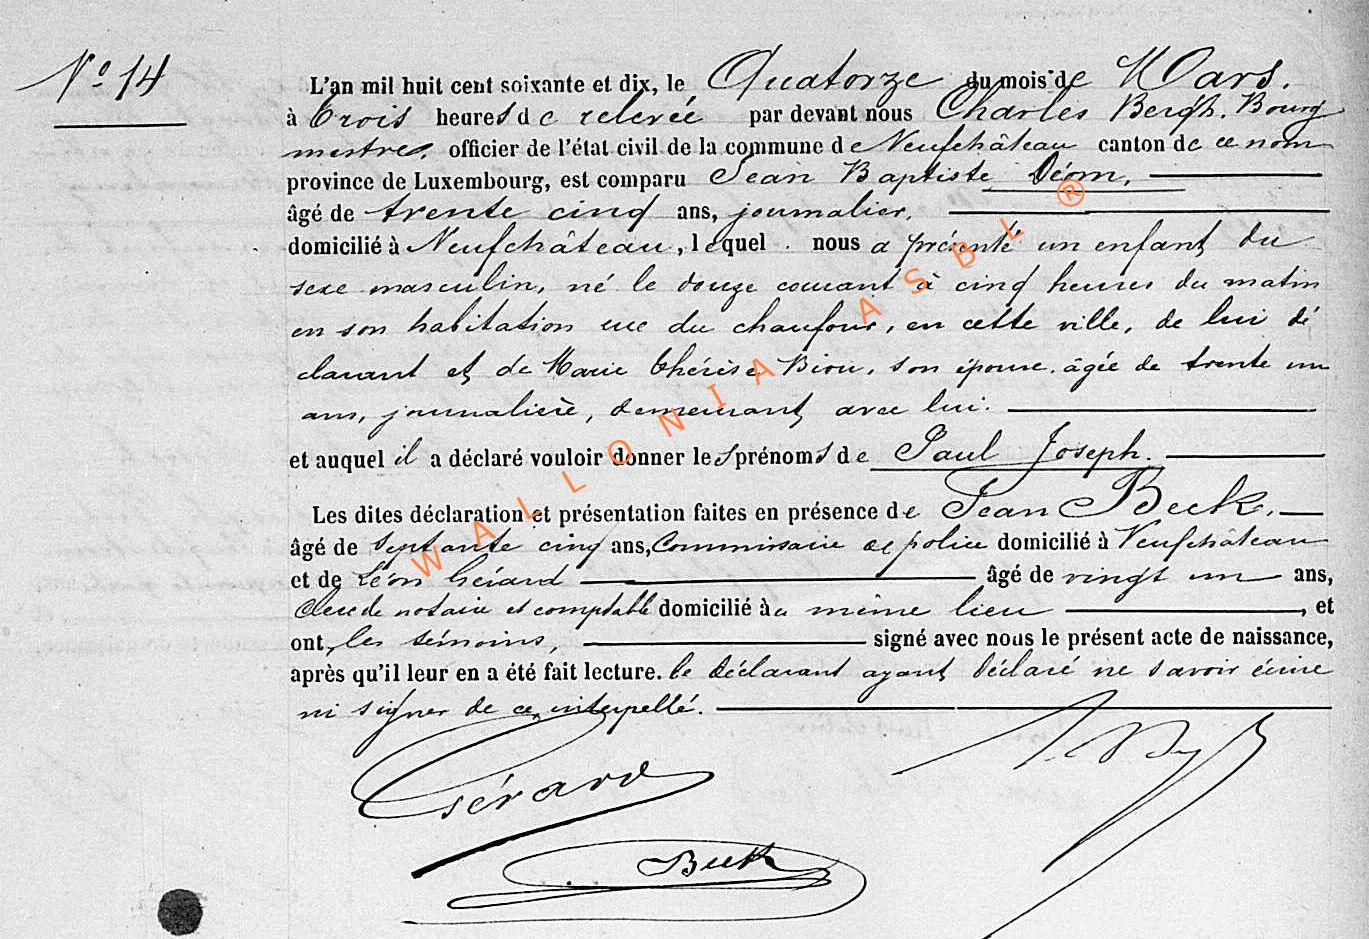 N° 14
L'an mil huit cent soixante et dix, le Quatorze du mois de Mars.
à trois heures de relevée par devant nous Charles Bergh. Bourg
mestre, officier de l'état civil de la commune de Neufchâteau canton de ce nom
province de Luxembourg, est comparu Jean Baptiste Déom,
âgé de trente cinq ans, journalier,
domicilié à Neufchâteau, lequel nous a présenté un enfant du
sexe masculin, né le douze courant à cinq heures du matin
en son habitation rue du chaufour, en cette ville, de lui dé
clarant et de Marie Thérèse son épouse. âgée de trente un
ans, journalière, demeurant avec lui.
et auquel il a déclaré vouloir donner les prénoms de Paul Joseph.
Les dites déclaration et présentation faites en présence de Jean Beck,
âgé de septante cinq ans, Commissaire de police domicilié à Neufchâteau
et de Léon Gérard âgé de vingt un ans,
Clerc de notaire et comptable domicilié à même lieu, et
ont, les témoins, signé avec nous le présent acte de naissance,
après qu'il leur en a été fait lecture. le déclarant ayant déclaré ne savoir écrire
ni signer de ce interpellé.
Gérard
Beck
WALLONIA ASBL ®